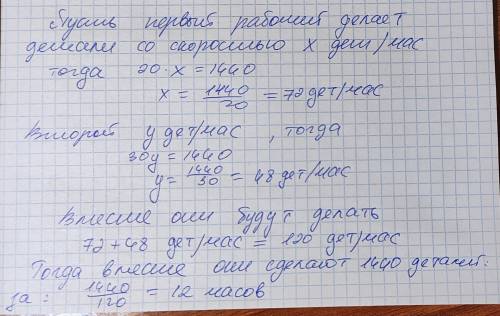 Пусть первый рабочий делает
детали со скоростью x дет/час
тогда 20·x = 1440
x = 1440/20 = 72 дет/час
Второй y дет/час, тогда
30y = 1440
y = 1440/30 = 48 дет/час
Вместе они будут делать
72+48 дет/час = 120 дет/час
Тогда вместе они сделают 1440 деталей
за: 1440/120 = 12 часов